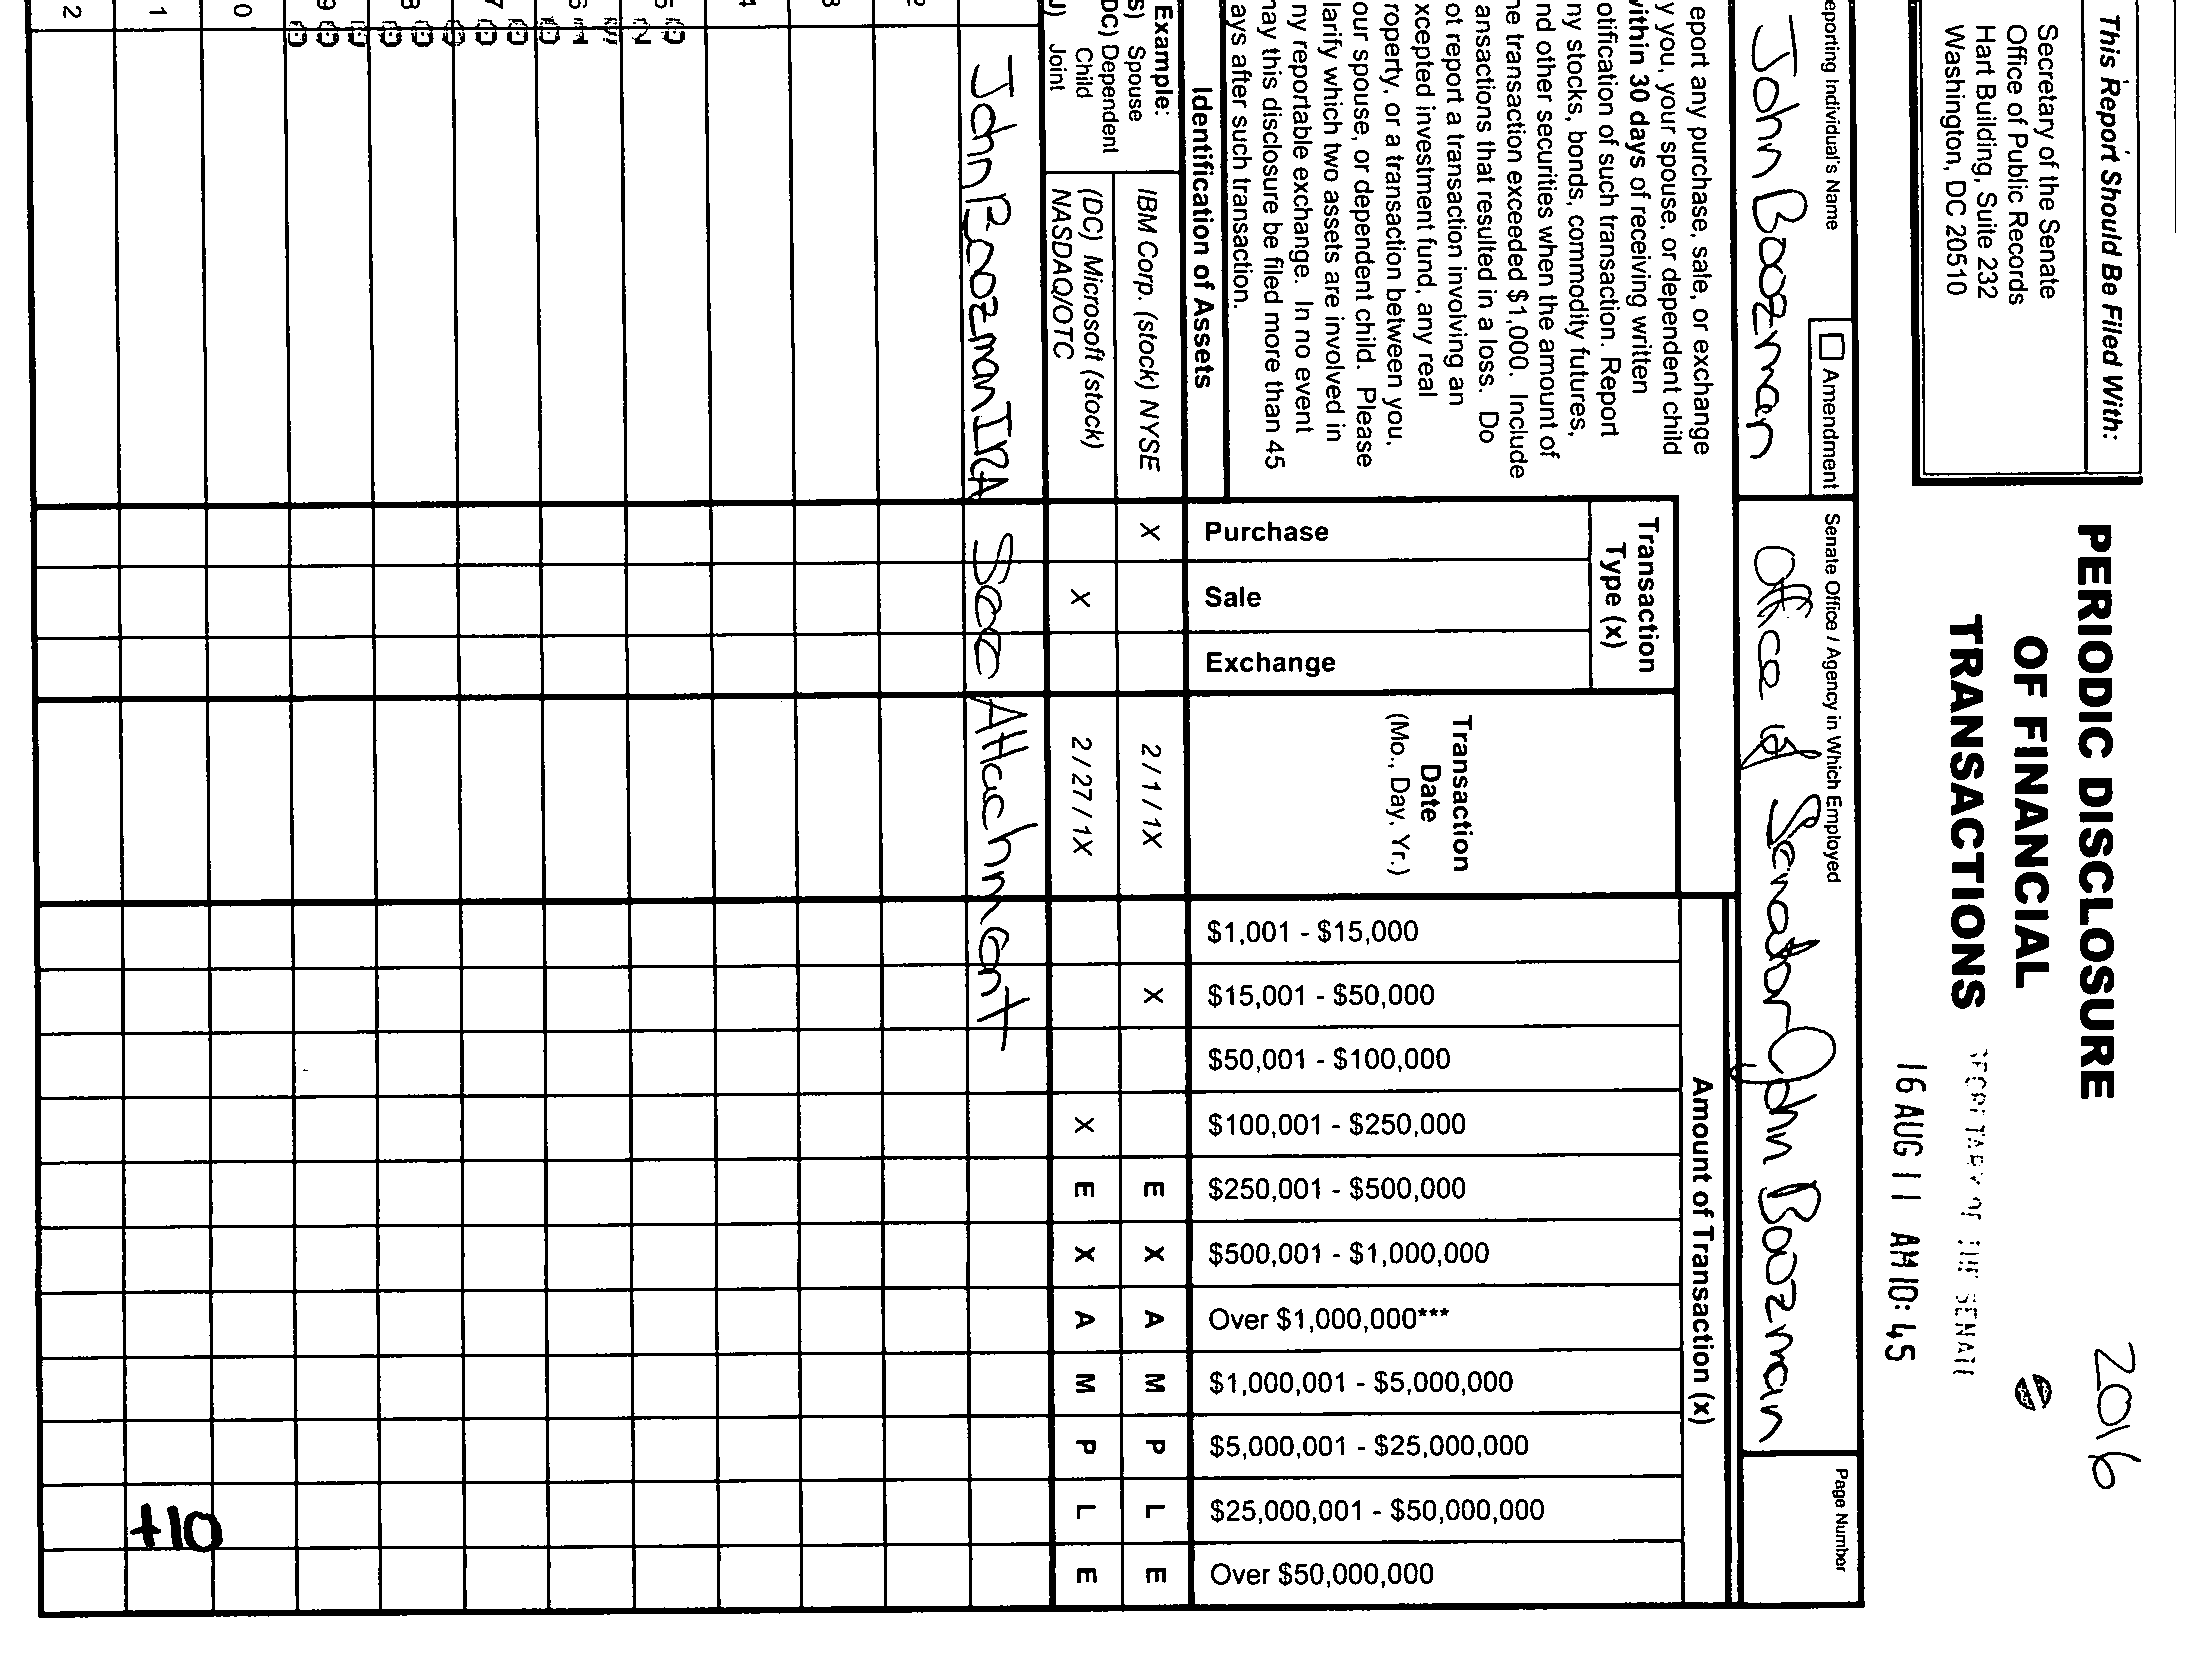 This Report Should Be Filed With:
Secretary of the Senate
Office of Public Records
Hart Building, Suite 232
Washington, DC 20510
PERIODIC DISCLOSURE
OF FINANCIAL
TRANSACTIONS
2016
SECRETARY OF THE SENATE
16 AUG 11 AM 10: 45
eporting Individual's Name
Amendment
John Boozman
Senate Office / Agency in Which Employed
Office of Senator John Boozman
Page Number
eport any purchase, sale, or exchange
y you, your spouse, or dependent child
vithin 30 days of receiving written
otification of such transaction. Report
ny stocks, bonds, commodity futures,
nd other securities when the amount of
ne transaction exceeded $1,000. Include
ansactions that resulted in a loss. Do
ot report a transaction involving an
xcepted investment fund, any real
roperty, or a transaction between you,
our spouse, or dependent child. Please
larify which two assets are involved in
ny reportable exchange. In no event
nay this disclosure be filed more than 45
ays after such transaction.
Identification of Assets
Transaction
Type (x)
Purchase
Sale
Exchange
Transaction
Date
(Mo., Day, Yr.)
Amount of Transaction (x)
$1,001 - $15,000
$15,001 - $50,000
$50,001 - $100,000
$100,001 - $250,000
$250,001 - $500,000
$500,001 - $1,000,000
Over $1,000,000***
$1,000,001 - $5,000,000
$5,000,001 - $25,000,000
$25,000,001 - $50,000,000
Over $50,000,000
Example:
S) Spouse
DC) Dependent
Child
J) Joint
IBM Corp. (stock) NYSE X 2 / 1 / 1X X E X A M P L E
(DC) Microsoft (stock)
NASDAQ/OTC X 2 / 27 / 1X X E X A M P L E
John Boozman IRA See Attachment
3
4
5
6
7
8
9
0
1
2
+10